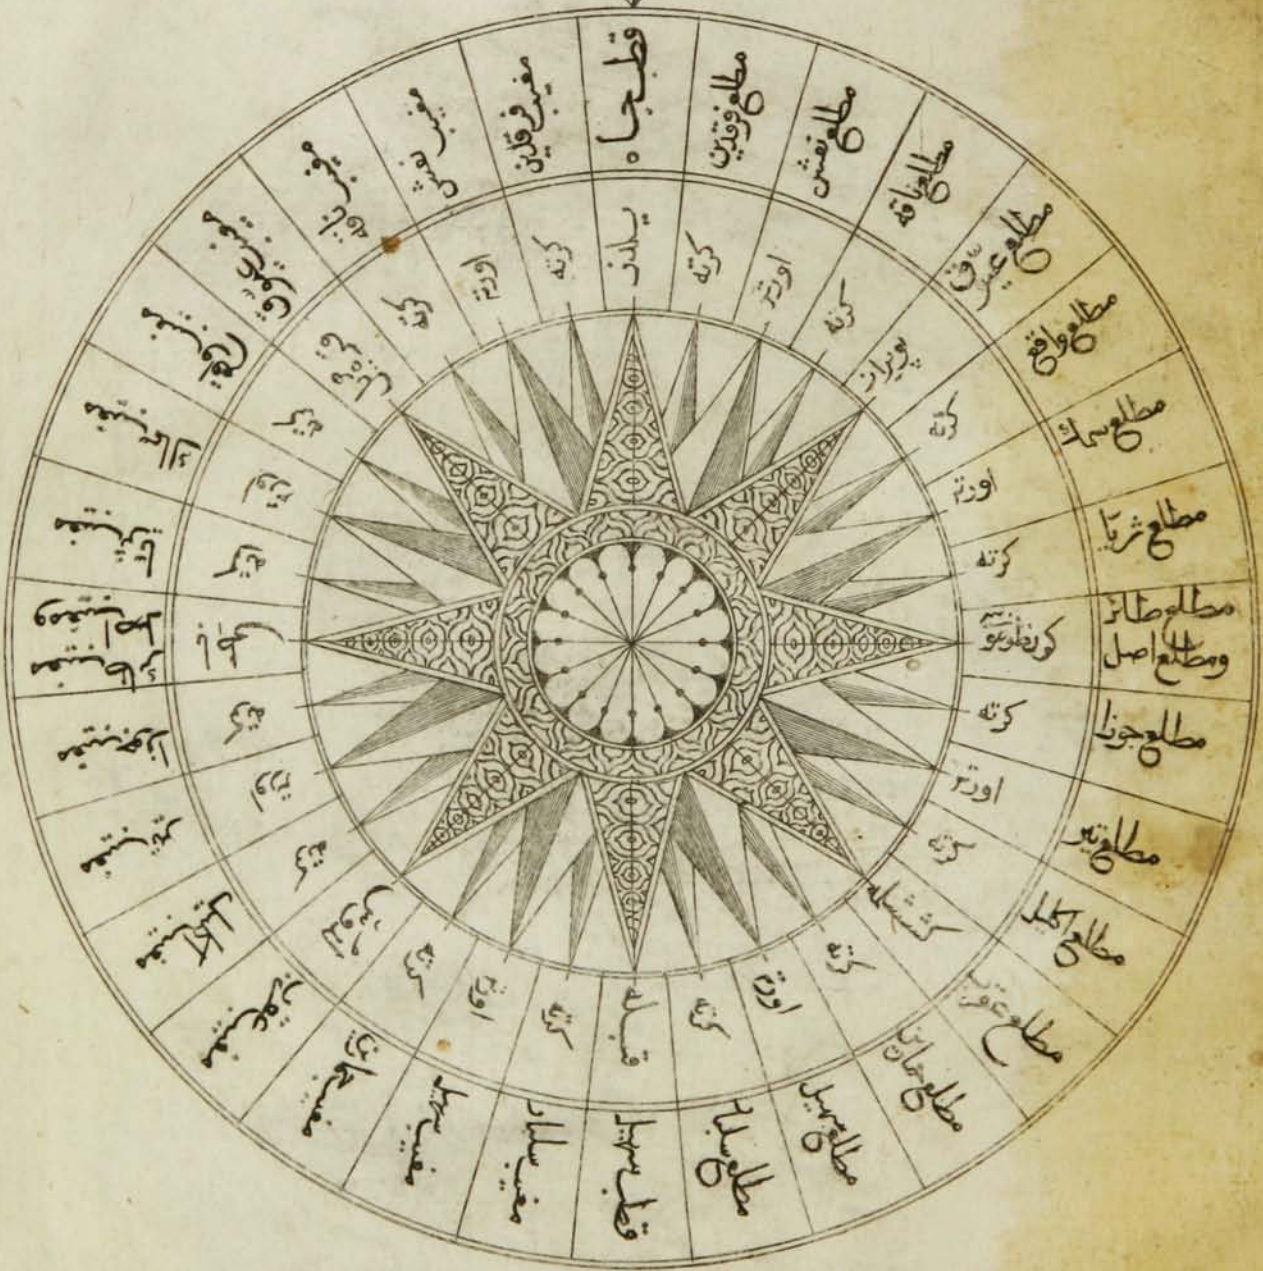 قطب جاه
مطلع فرقدين
مطلع نعش
مطلع ناقه
مطلع عيّوق
مطلع واقع
مطلع سماك
مطلع ثريّا
مطلع طائر
ومطلع اصل
مطلع جوزا
مطلع تير
مطلع اكليل
مطلع عقرب
مطلع حمارين
مطلع سهيل
مطلع سلبار
قطب سهيل
مغيب سلبار
مغيب سهيل
مغيب حمارين
مغيب عقرب
مغيب اكليل
مغيب تير
مغيب جوزا
مغيب طائر
ومغيب اصل
مغيب ثريّا
مغيب سماك
مغيب واقع
مغيب عيّوق
مغيب ناقه
مغيب نعش
مغيب فرقدين
يلدز
كرته
اورته
كرته
پويراز
كرته
اورته
كرته
كون طوغوسى
كرته
اورته
كرته
كششلمه
كرته
اورته
كرته
قبله
كرته
اورته
كرته
لودوس
كرته
اورته
كرته
كرته
اورته
كرته
قره يل
كرته
اورته
كرته